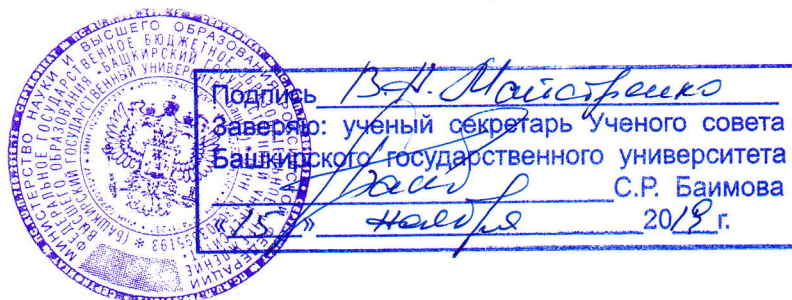 Подпись В.Н. Майстренко
Заверяю: ученый секретарь Ученого совета
Башкирского государственного университета
С.Р. Баимова
«15» ноября 2019 г.
МИНИСТЕРСТВО НАУКИ И ВЫСШЕГО ОБРАЗОВАНИЯ
ФЕДЕРАЛЬНОЕ ГОСУДАРСТВЕННОЕ БЮДЖЕТНОЕ
ВЫСШЕГО ОБРАЗОВАНИЯ «БАШКИРСКИЙ
ГОСУДАРСТВЕННЫЙ УНИВЕРСИТЕТ